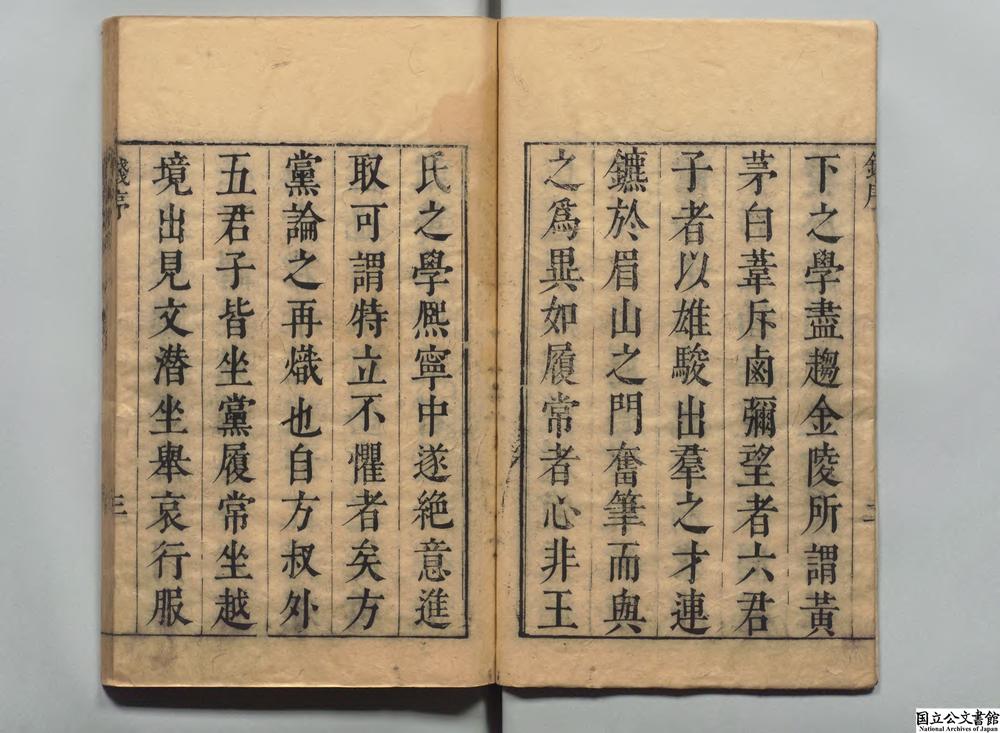 下之學盡趨金陵所謂黃
茅白葦斥鹵彌望者六君
子者以雄駿出羣之才連
鑣於眉山之門奮筆而與
之爲異如履常者心非王
氏之學熈寧中遂絶意進
取可謂特立不懼者矣方
黨論之再熾也自方叔外
五君子皆坐黨履常坐越
境出見文潛坐舉哀行服
錢序
三
国立公文書館
National Archives of Japan